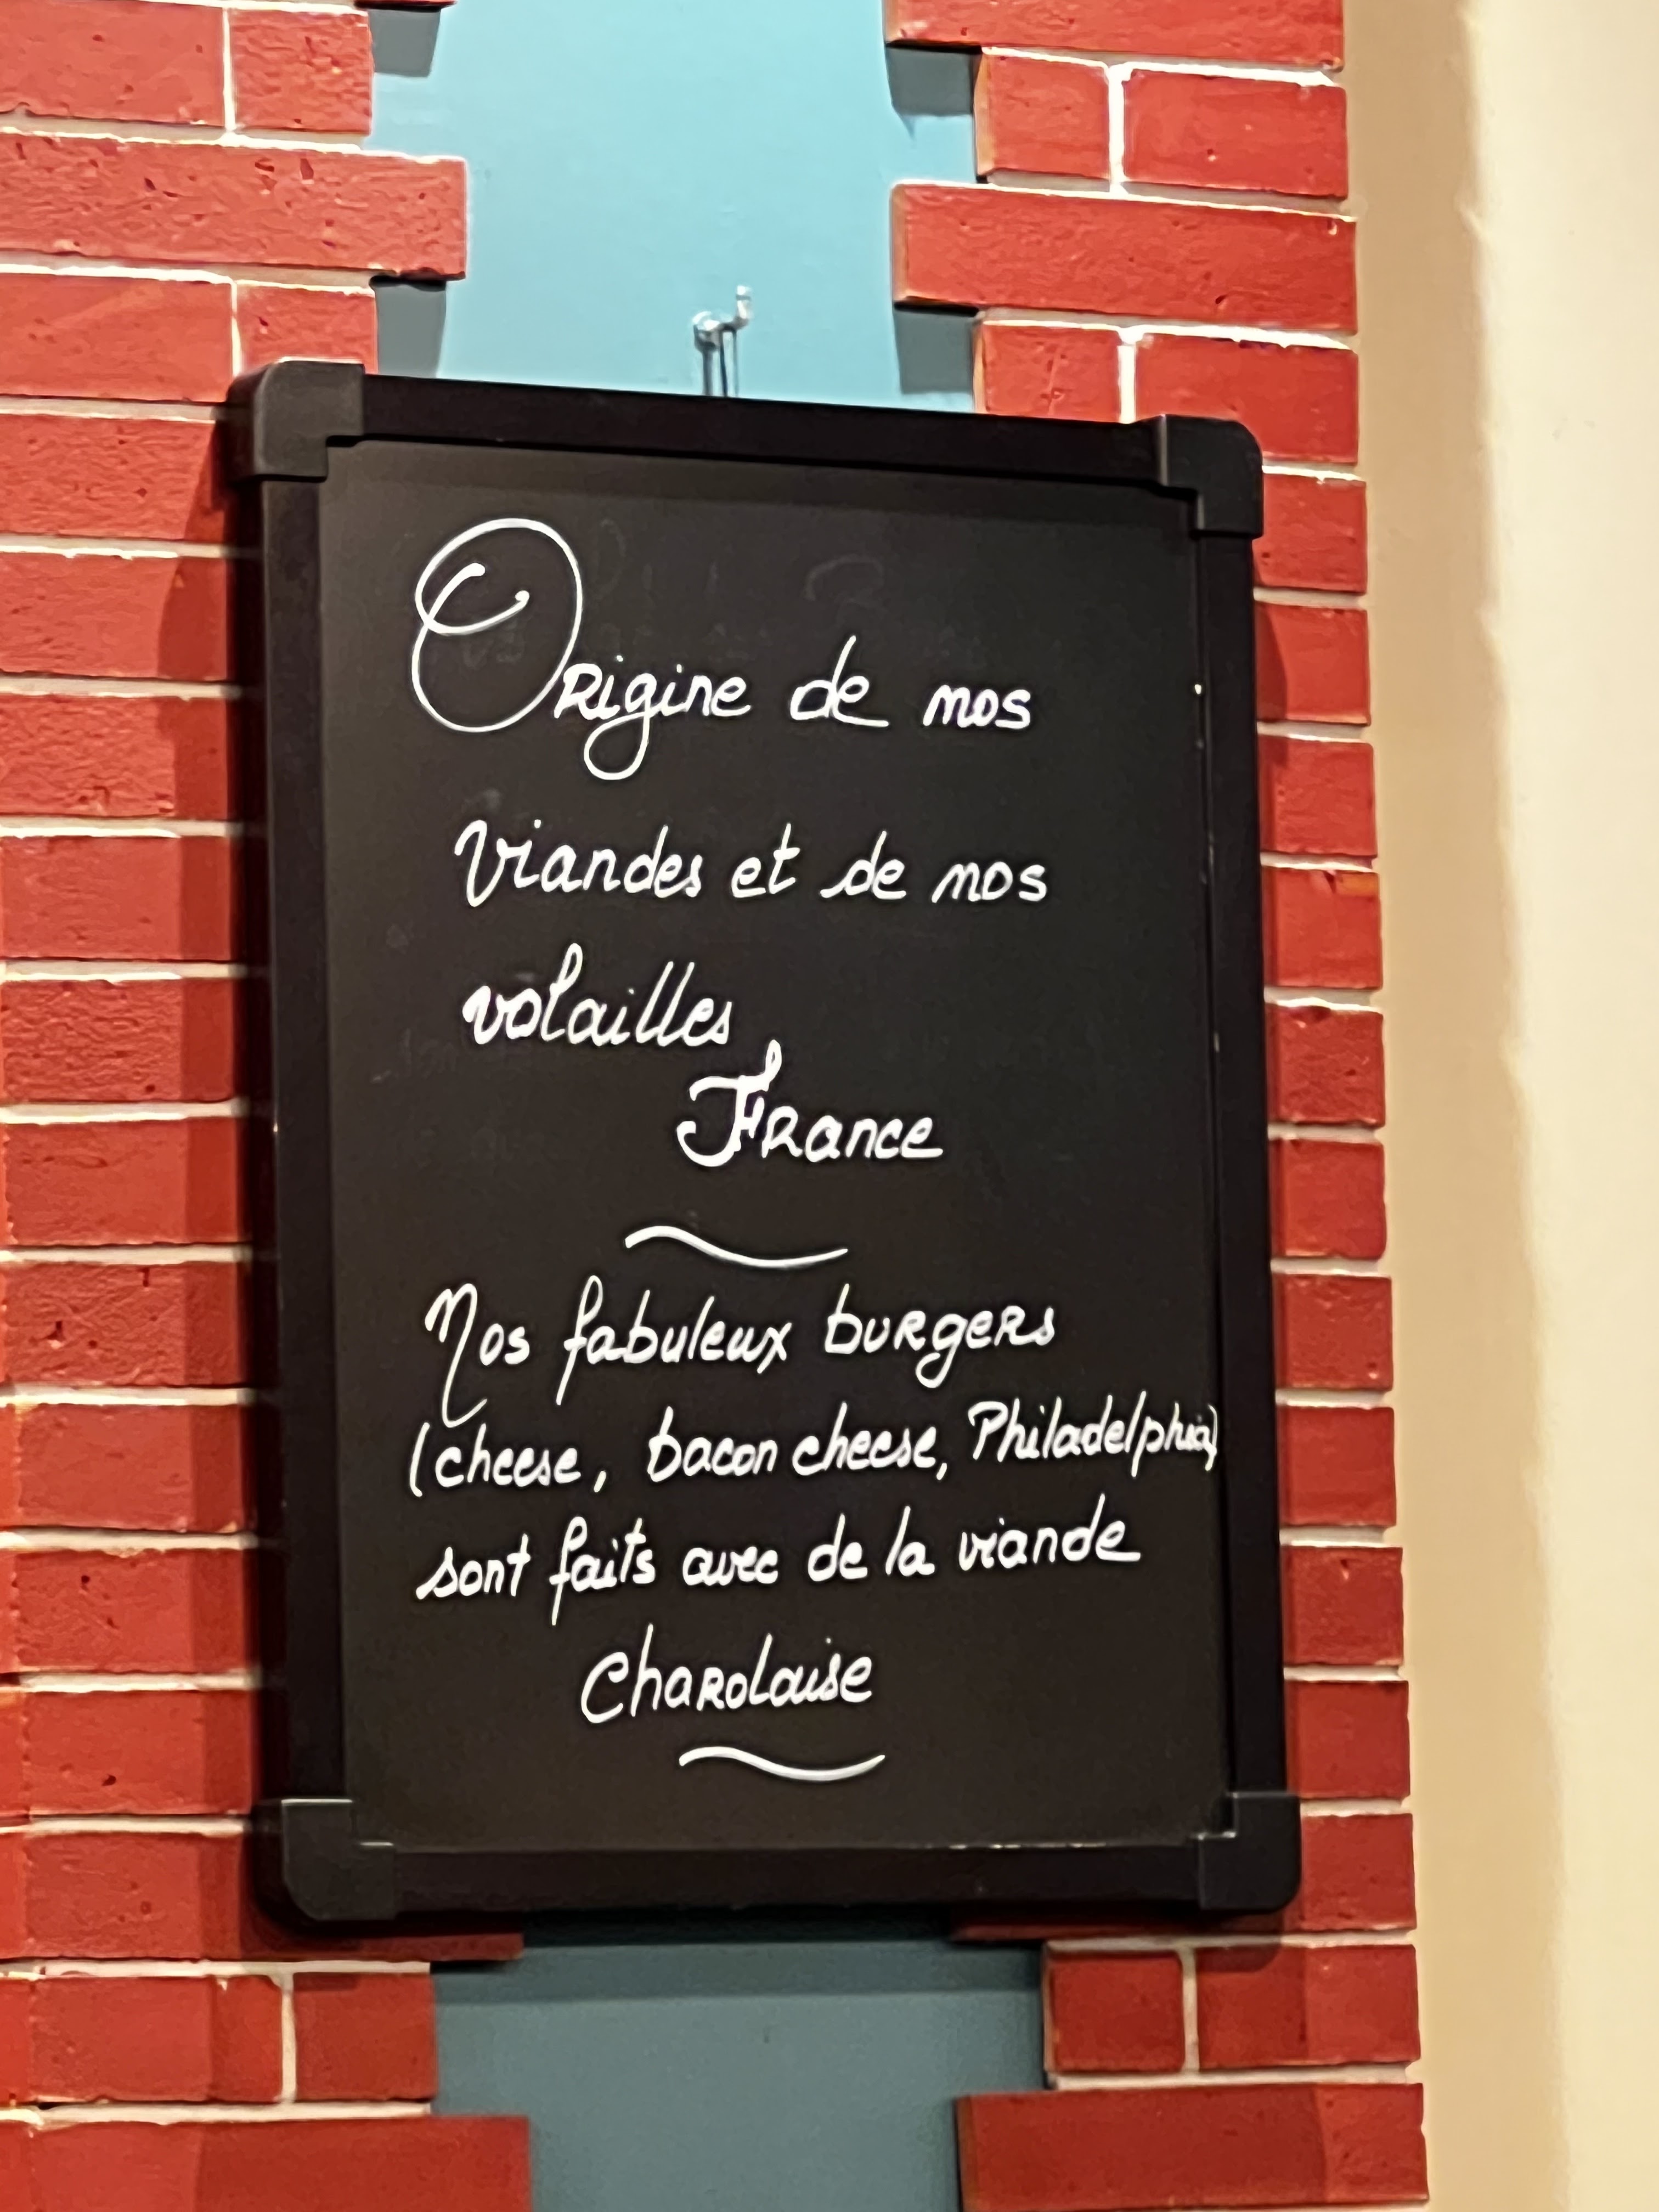 Origine de nos
Viandes et de nos
volailles
France
Nos fabuleux burgers
(cheese, bacon cheese, Philadelphia)
sont faits avec de la viande
Charolaise